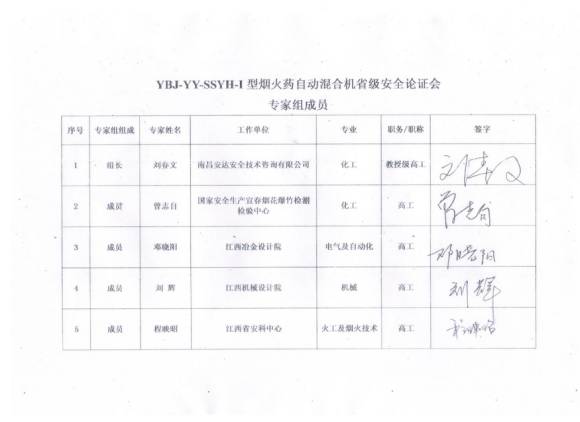 YBJ-YY-SSYH-I 型烟火药自动混合机省级安全论证会
专家组成员
序号 专家组组成 专家姓名 工作单位 专业 职务/职称 签字
1 组长 刘春文 南昌安达安全技术咨询有限公司 化工 教授级高工 刘春文
2 成员 曾志自 国家安全生产宜春烟花爆竹检测
检验中心 化工 高工
3 成员 邓晓阳 江西冶金设计院 电气及自动化 高工 邓晓阳
4 成员 刘 辉 江西机械设计院 机械 高工 刘辉
5 成员 程映昭 江西省安科中心 火工及烟火技术 高工